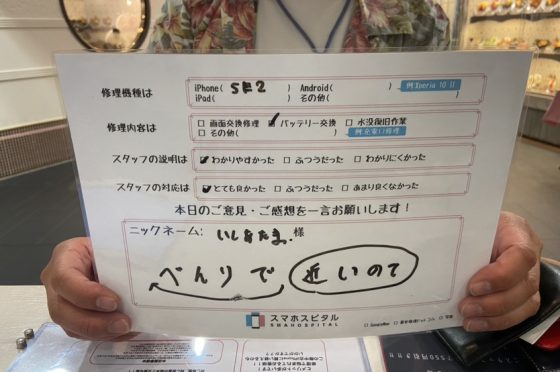 修理機種は
iPhone( SE2 ) Android( ) 例:Xperia 10 II
iPad( ) その他( )
修理内容は
□ 画面交換修理 ☑ バッテリー交換 □ 水没復旧作業
□ その他( ) 例:充電口修理
スタッフの説明は
☑ わかりやすかった □ ふつうだった □ わかりにくかった
スタッフの対応は
☑ とても良かった □ ふつうだった □ あまり良くなかった
本日のご意見・ご感想を一言お願いします!
ニックネーム: いしあたま. 様
べんりで 近いので
スマホスピタル
SMAHOSPITAL